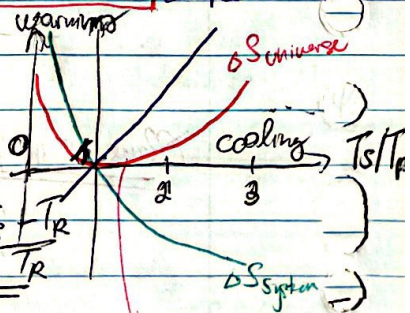 warming
ΔSuniverse
0 1 cooling Ts/TR
2 3
- TR
TR
ΔSSystem